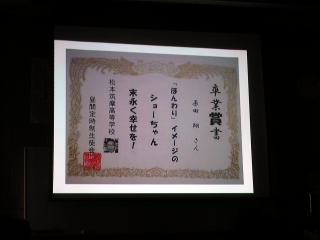 卒業賞書
原田 翔 さん
「ほんわり」イメージの
ショーちゃん
末永く幸せを！
松本筑摩高等学校
昼間定時制生徒会